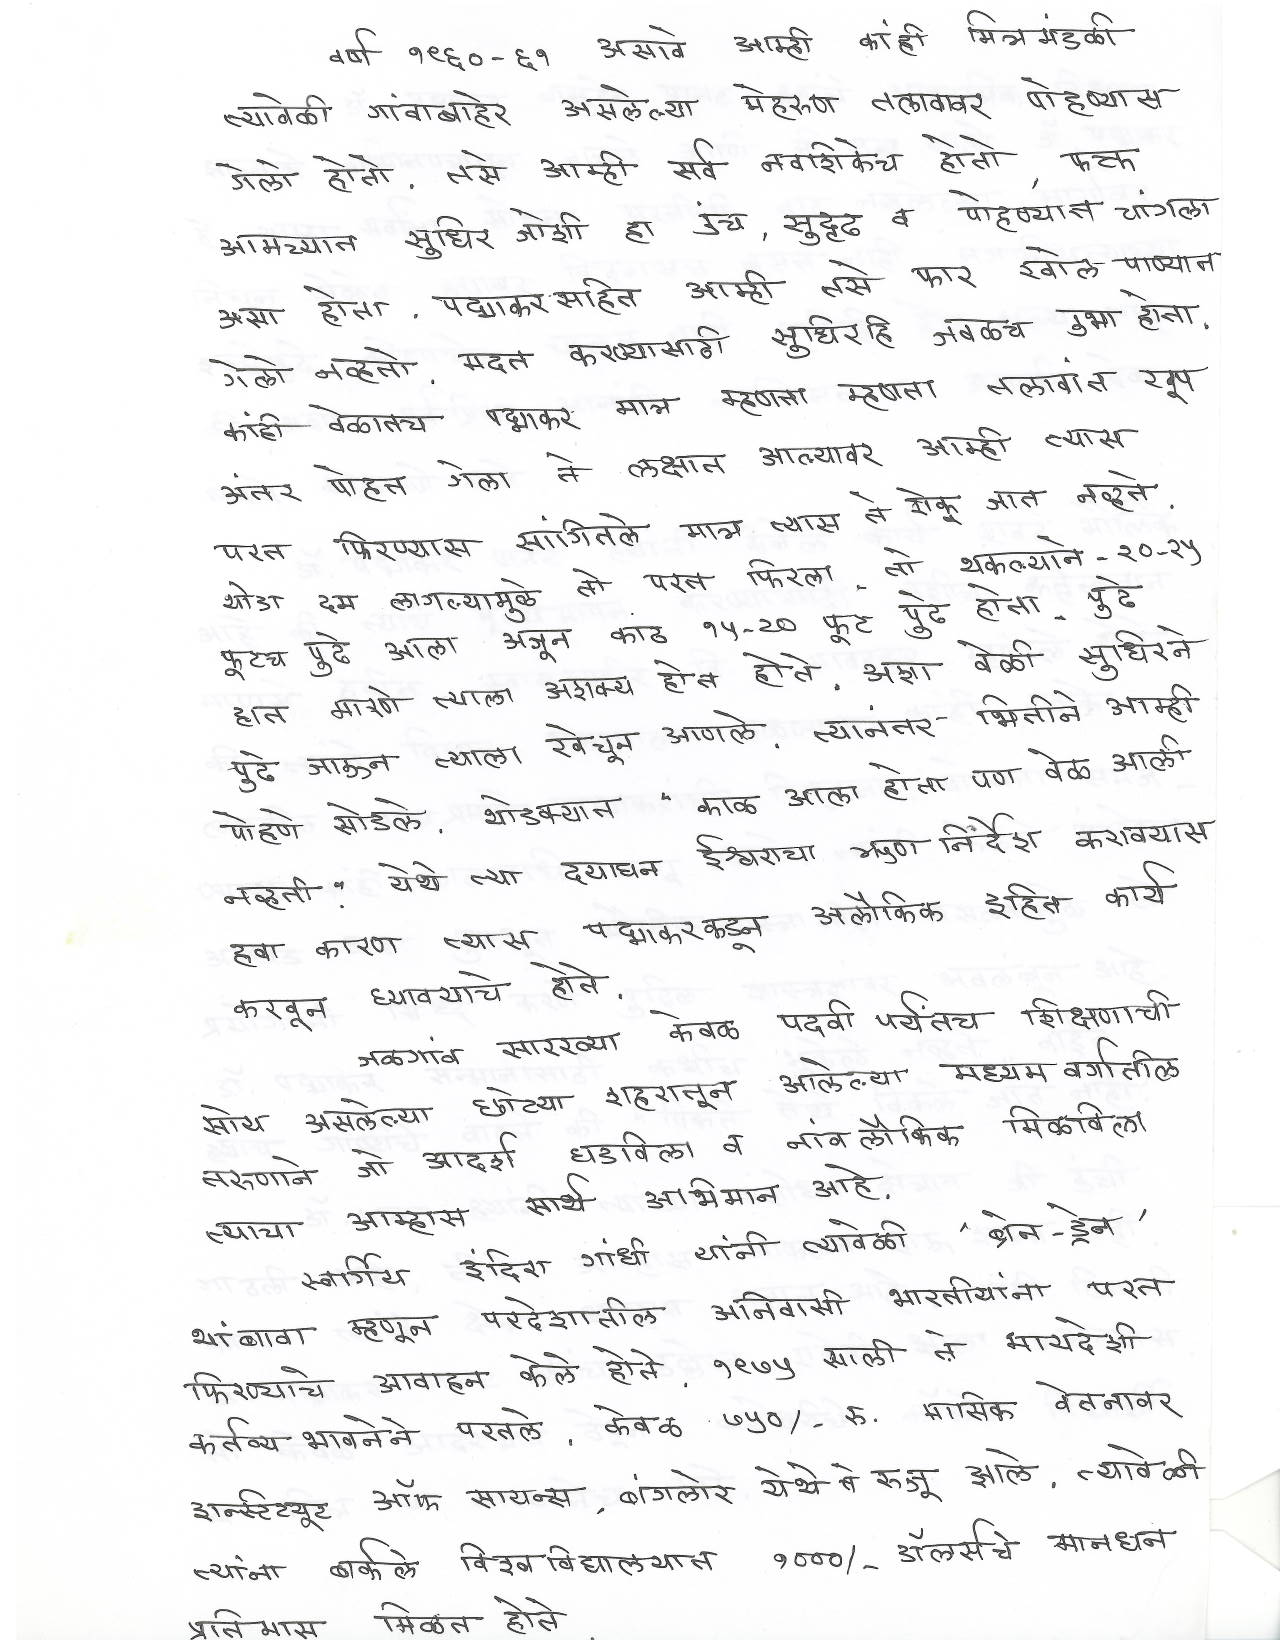 वर्ष १९६०-६१ असावे आम्ही कांही मित्रमंडळी
त्यावेळी गांवाबाहेर असलेल्या मेहरुण तलावावर पोहण्यास
गेलो होतो. तसे आम्ही सर्व नवशिकेच होतो, फक्त
आमच्यात सुधिर जोशी हा उंच, सुदृढ व पोहण्यात चांगला
असा होता. पद्माकरसहित आम्ही तसे फार खोल पाण्यात
गेलो नव्हतो. मदत करण्यासाठी सुधिरहि जवळच उभा होता.
कांही वेळातच पद्माकर मात्र म्हणता म्हणता तलावांत खूप
अंतर पोहत गेला ते लक्षात आल्यावर आम्ही त्यास
परत फिरण्यास सांगितले मात्र त्यास ते ऐकू जात नव्हते.
थोडा दम लागल्यामुळे तो परत फिरला. तो थकल्याने - २०-२५
फूटच पुढे आला अजून काठ १५-२० फूट पुढे होता. पुढे
हात मारणे त्याला अशक्य होत होते. अशा वेळी सुधिरने
पुढे जाऊन त्याला खेचून आणले. त्यांनतर भितीने आम्ही
पोहणे सोडले. थोडक्यात "काळ आला होता पण वेळ आली
नव्हती" येथे त्या दयाघन ईश्वराचा ऋणनिर्देश करावयास
हवा कारण त्यास पद्माकरकडून अलौकिक ईहित कार्य
करवून घ्यावयाचे होते.
जळगांव सारख्या केवळ पदवी पर्यंतच शिक्षणाची
सोय असलेल्या छोट्या शहरातून आलेल्या मध्यमवर्गातील
तरुणाने जो आदर्श घडविला व नांवलौकिक मिळविला
त्याचा आम्हास सार्थ अभिमान आहे.
स्वर्गिय इंदिरा गांधी यांनी त्यावेळी 'ब्रेन-ड्रेन'
थांबावा म्हणून परदेशातील अनिवासी भारतीयांना परत
फिरण्याचे आवाहन केले होते. १९७५ साली ते मायदेशी
कर्तव्य भावनेने परतले. केवळ ७५०/- रु. मासिक वेतनावर
इन्स्टिट्यूट ऑफ सायन्स, बांगलोर येथे ते रुजू झाले. त्यावेळी
त्यांना बर्कले विश्वविद्यालयात १०००/- डॉलर्सचे मानधन
प्रतिमास मिळत होते.